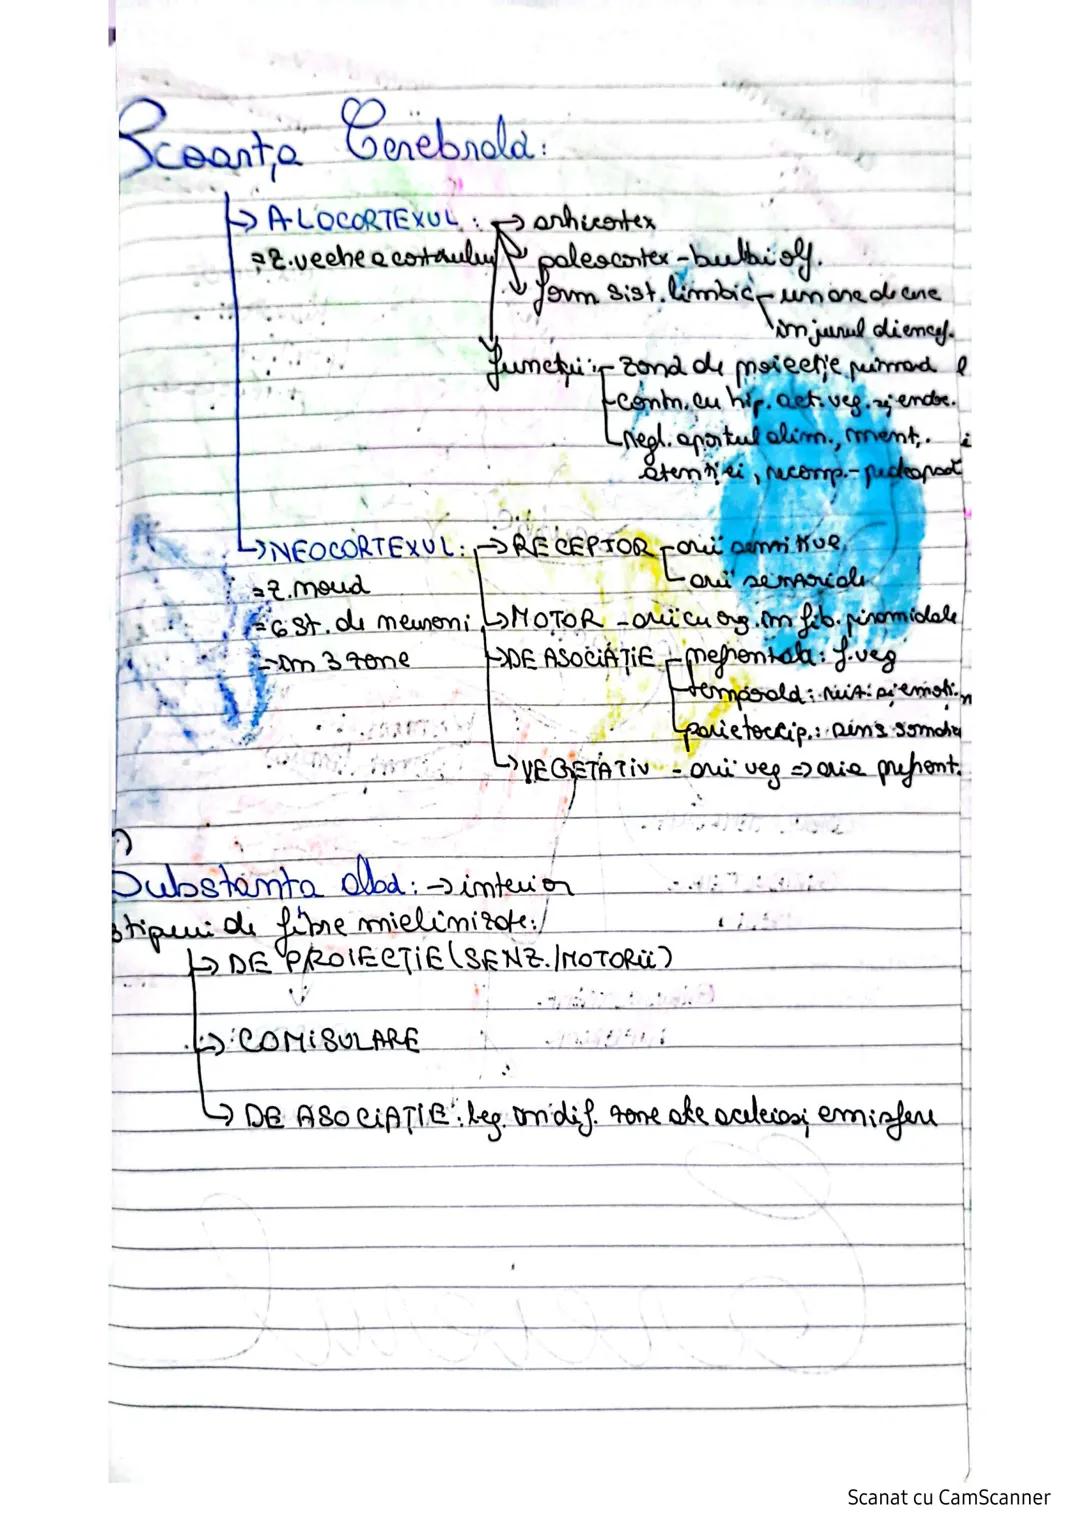 Scoarța Cerebrală:
→ ALOCORTEXUL: → arhicortex
= z. veche a cortexului → paleocortex - bulbi olf.
→ form sist. limbic - un
în jurul diencef.
funcții: - zonă de proiecție
- contr. cu hip. act. veg. și endoc.
- regl. aportul alim., ment.
atenției, recomp.-
→ NEOCORTEXUL: → RECEPTOR - arii senzitive
- arii senzoriale
= z. nouă
= 6 st. de neuroni → MOTOR - arii cu org. în fib. piramidale
- în 3 zone → DE ASOCIAȚIE - prefrontală: f. veg
- temporală: și emoți
- parietoccip.: sens somatic
→ VEGETATIV - arii veg => aria prefront.
Substanța albă: → interior
3 tipuri de fibre mielinizate:
→ DE PROIECȚIE (SENZ./MOTORII)
→ COMISULARE
→ DE ASOCIAȚIE: leg. într dif. zone ale aceleiași emisfere
Scanat cu CamScanner